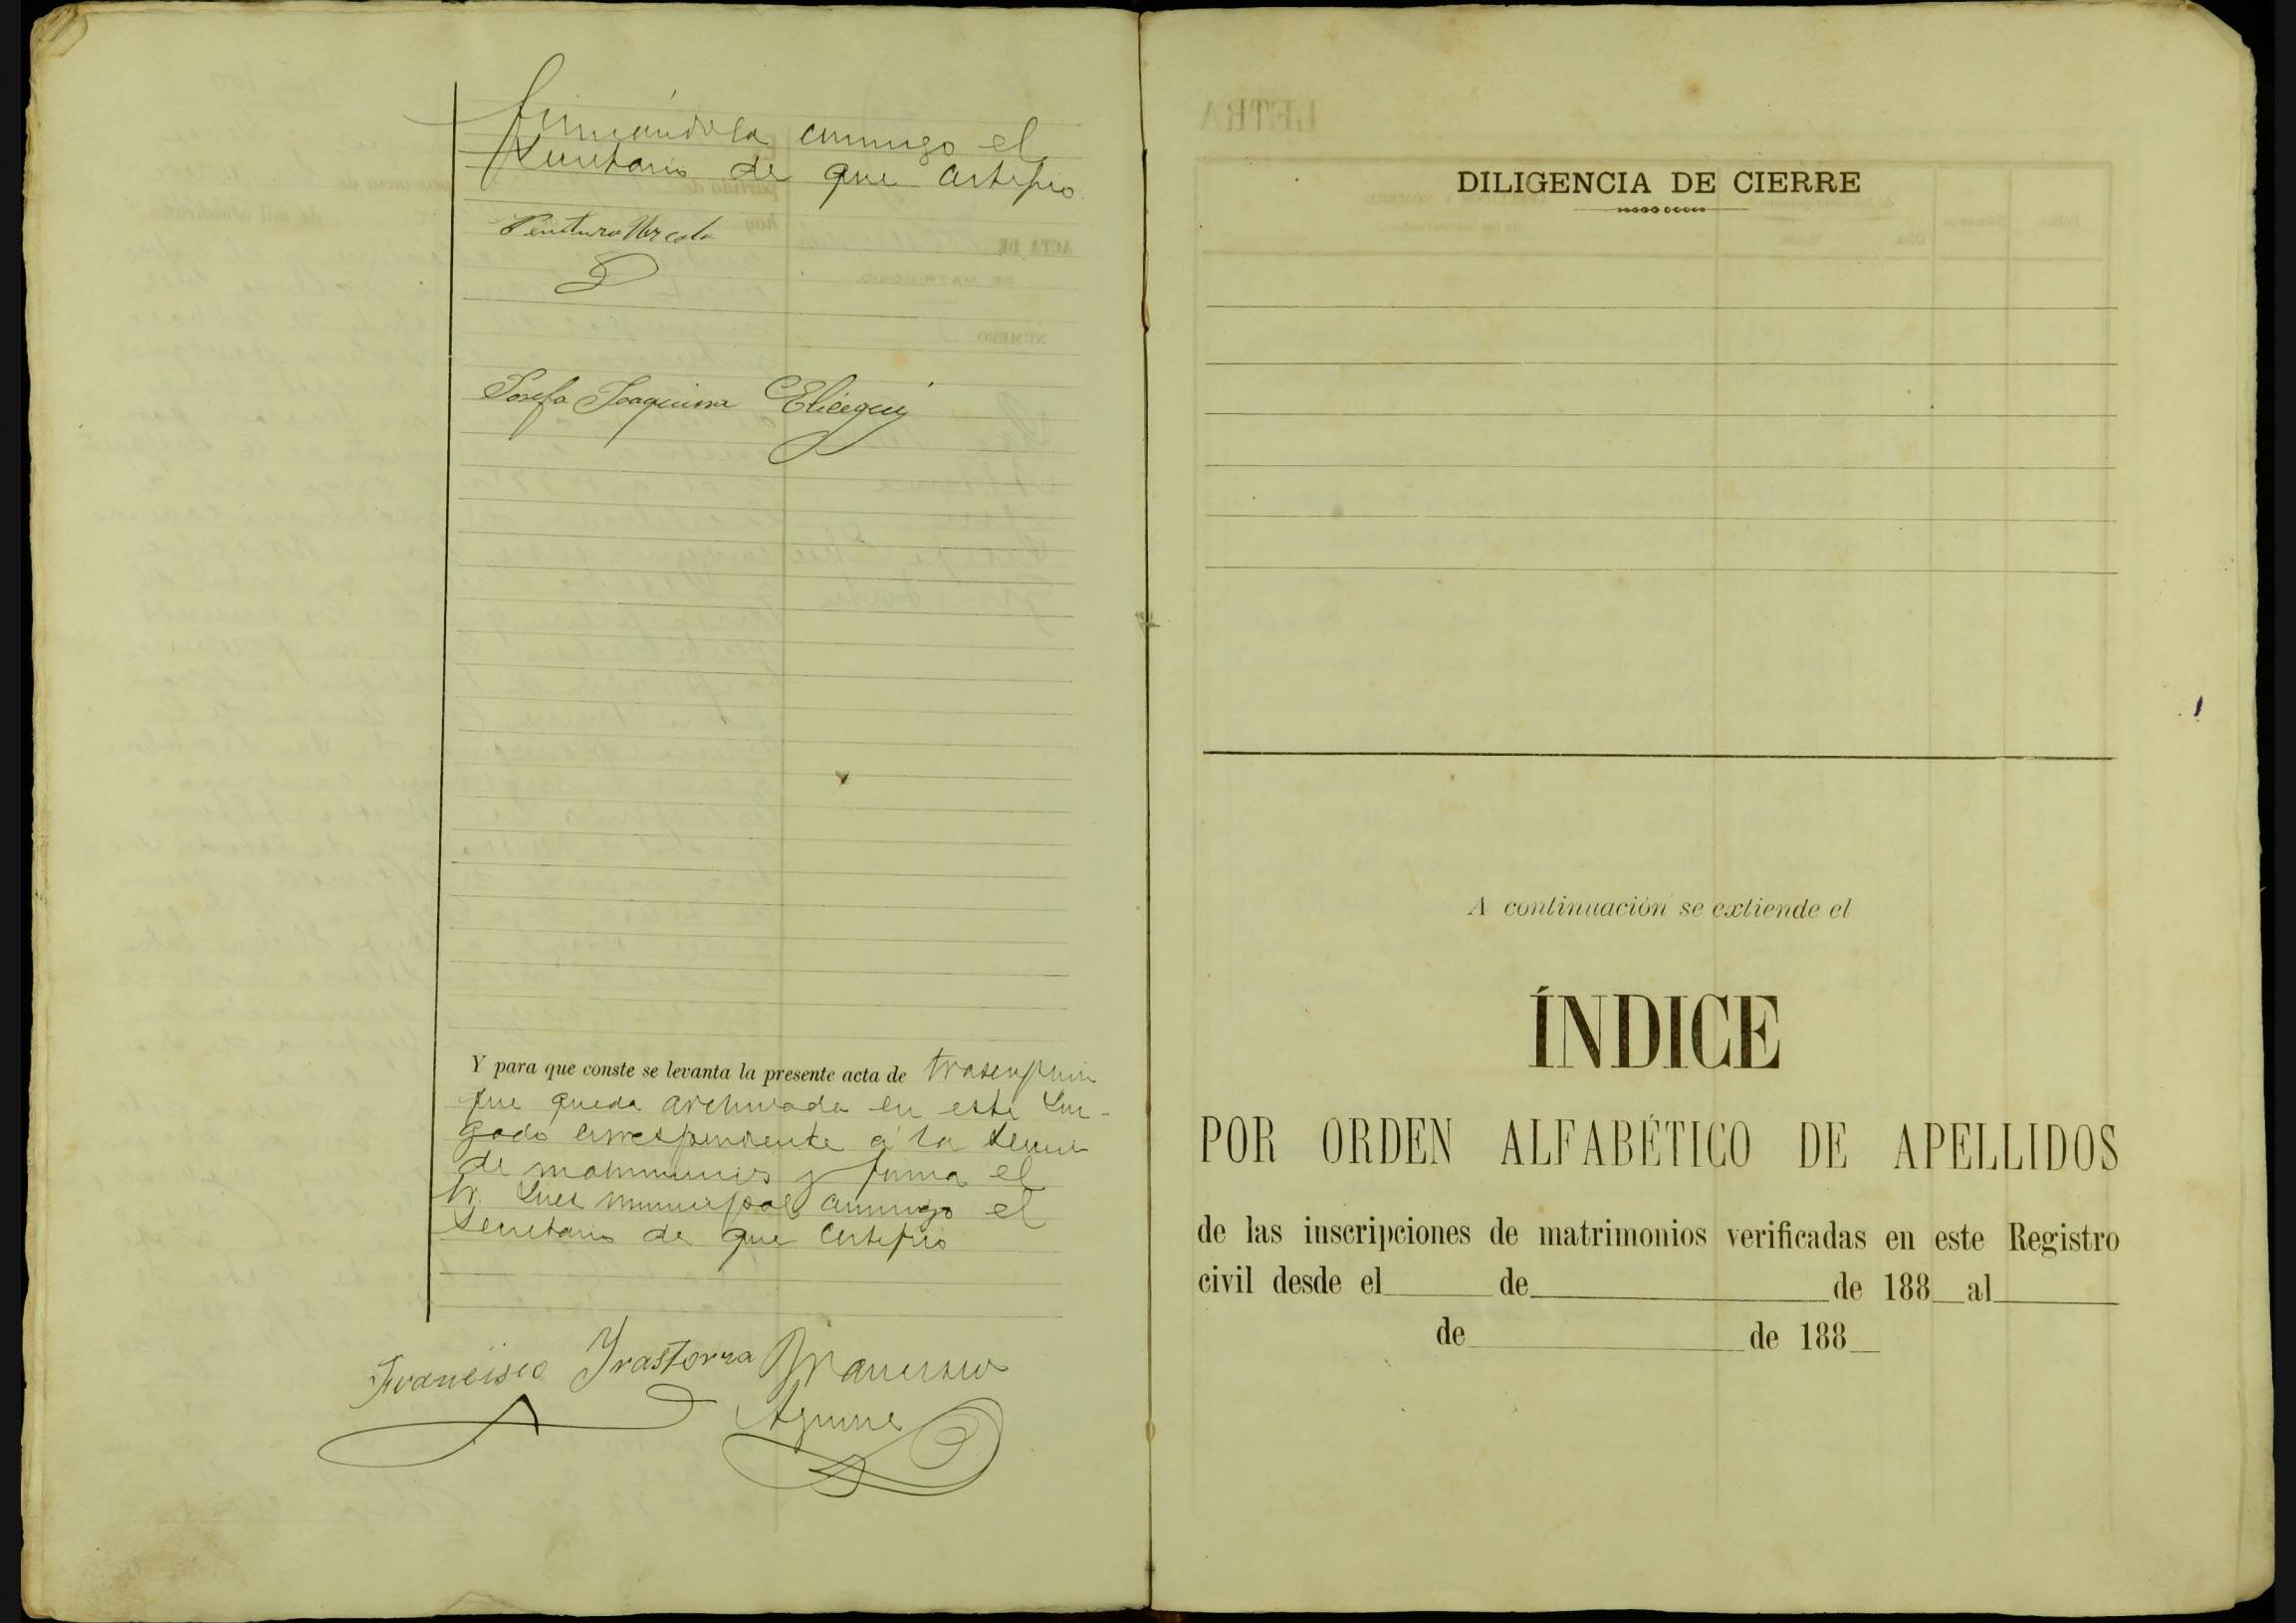 firmándola conmigo el
Secretario de que certifico.
Ventura Urcola
Josefa Joaquina Elicegui
Y para que conste se levanta la presente acta de trascripcion
que queda archivada en este Juz-
gado correspondiente á la seccion
de matrimonios y firma el
Sr. Juez municipal conmigo el
Secretario de que certifico
Francisco Irastorza Francisco
Aguirre
LETRA
DILIGENCIA DE CIERRE
A continuación se extiende el
ÍNDICE
POR ORDEN ALFABÉTICO DE APELLIDOS
de las inscripciones de matrimonios verificadas en este Registro
civil desde el de de 188 al
de de 188